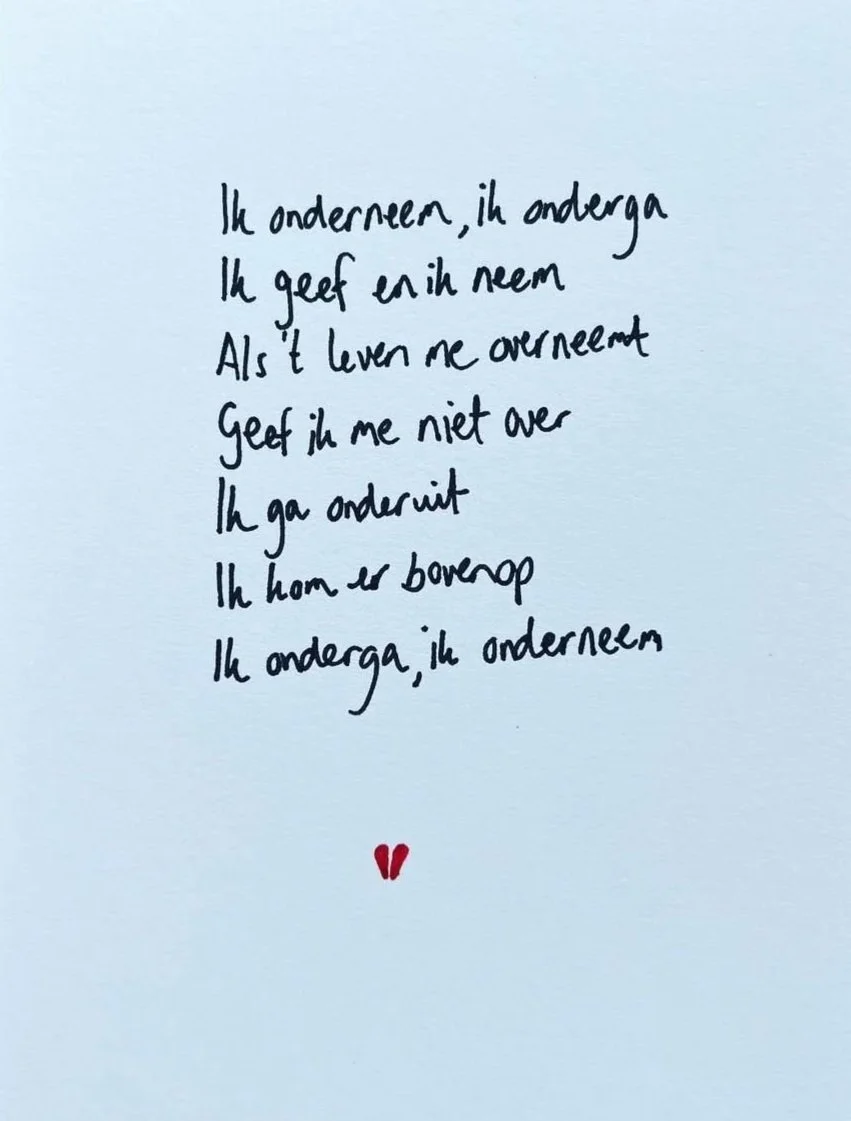 Ik onderneem, ik onderga
Ik geef en ik neem
Als 't leven me overneemt
Geef ik me niet over
Ik ga onderuit
Ik kom er bovenop
Ik onderga, ik onderneem